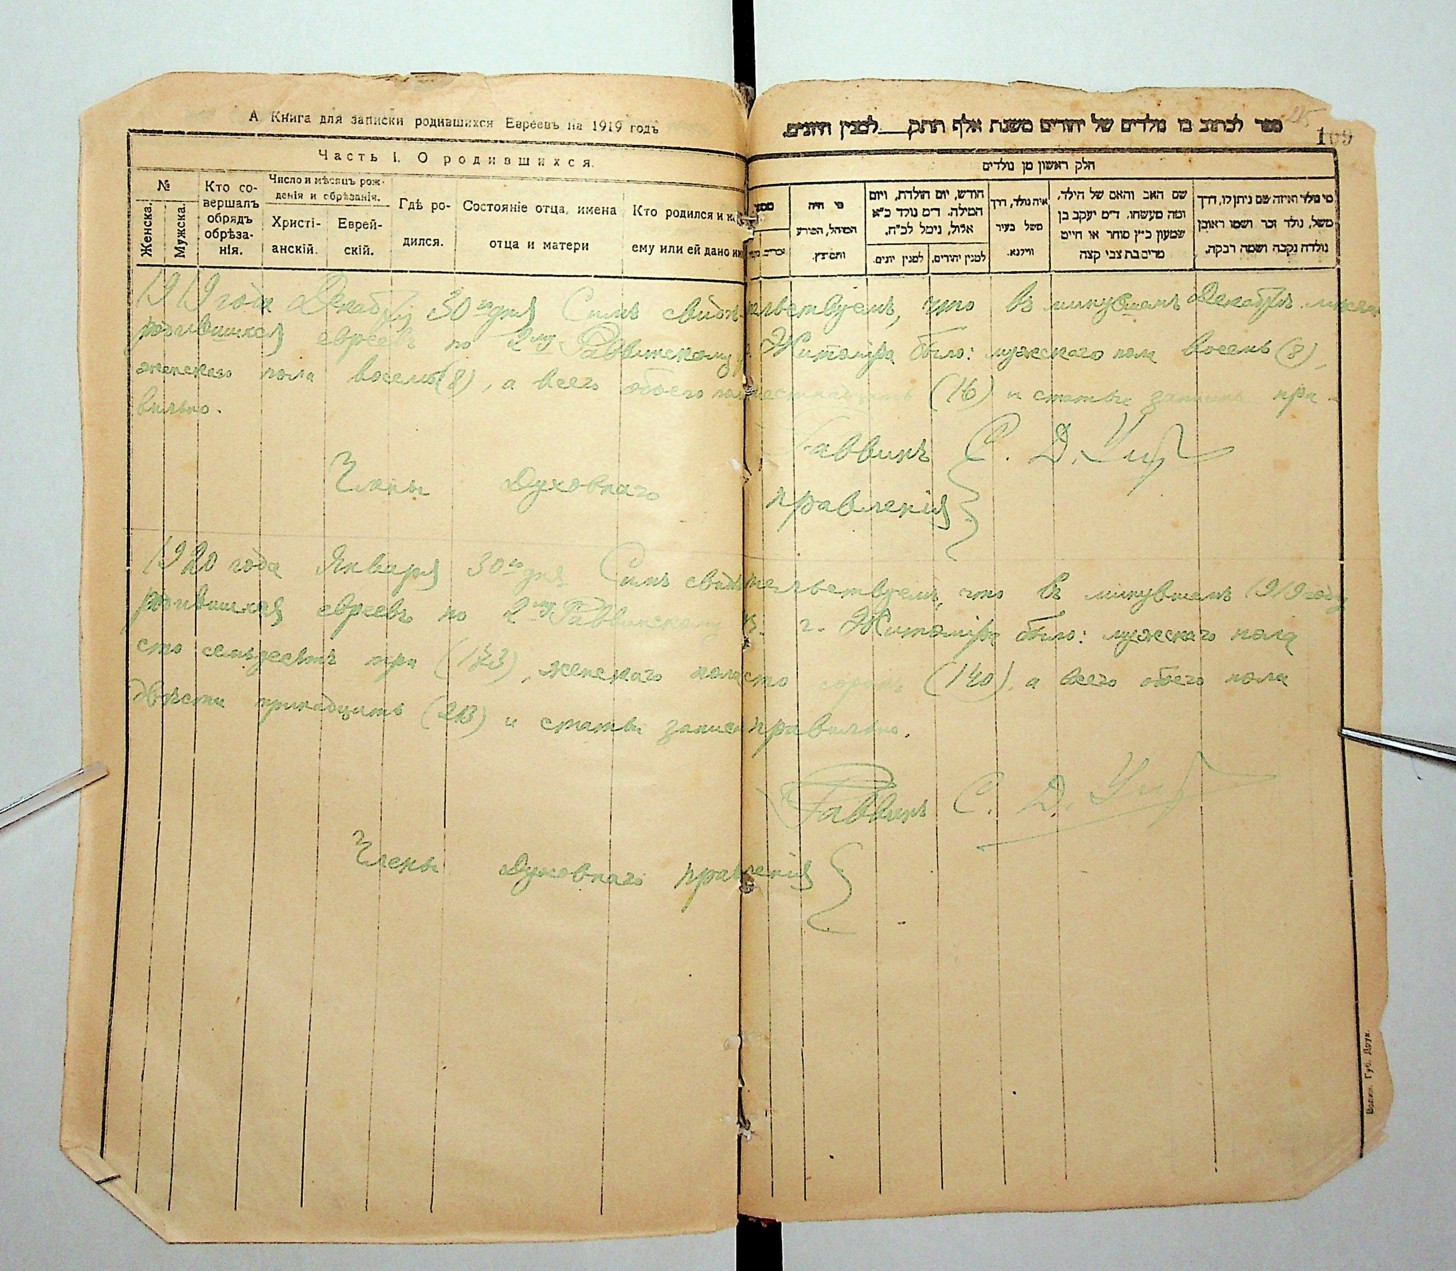 А. Книга для записки родившихся Евреевъ на 1919 годъ
ספר לכתוב בו נולדים של יהודים משנת אלף תתק___למנין היונים.
109
Часть I. О родившихся.
חלק ראשון מן נולדים
№
Женска.
Мужска.
Кто совершалъ обрядъ обрѣзанія.
Число и мѣсяцъ рожденія и обрѣзанія.
Христіанскій.
Еврейскій.
Гдѣ родился.
Состояніе отца, имена отца и матери
Кто родился и к
ему или ей дано им
מי היה המוהל, הפורע והמוצץ.
חודש, יום הולדת, ויום המילה. ד״מ נולד כ״א אלול, נימל לכ״ח.
למנין יונים.
למנין יהודים.
איה נולד, דרך משל בעיר ווילנא.
שם האב והאם של הילד, ומה מעשהו. ד״מ יעקב בן שמעון כ״ץ סוחר או חיים מרים בת צבי קצה
מי נולד ואיזה שם ניתן לו, דרך משל, נולד זכר ושמו ראובן נולדה נקבה ושמה רבקה.
1919 года Декабря 30го дня Симъ свидѣтельствуемъ, что въ минувшемъ Декабрѣ мѣсяцѣ
родившихся евреевъ по 2му Раввинскому Житоміра было: мужскаго пола восемь (8),
женскаго пола восемь (8), а всего обоего пола шестнадцать (16) и статьи записаны пра-
вильно.
Раввинъ С. Д.
Члены Духовнаго правленія
1920 года Января 30го дня Симъ свидѣтельствуемъ, что въ минувшемъ 1919 году
родившихся евреевъ по 2му Раввинскому г. Житоміра было: мужскаго пола
сто семьдесятъ три (173), женскаго пола сто сорокъ (140), а всего обоего пола
тринадцать и статьи записаны правильно.
Раввинъ С. Д.
Члены Духовнаго правленія
Волин. Губ. Друк.